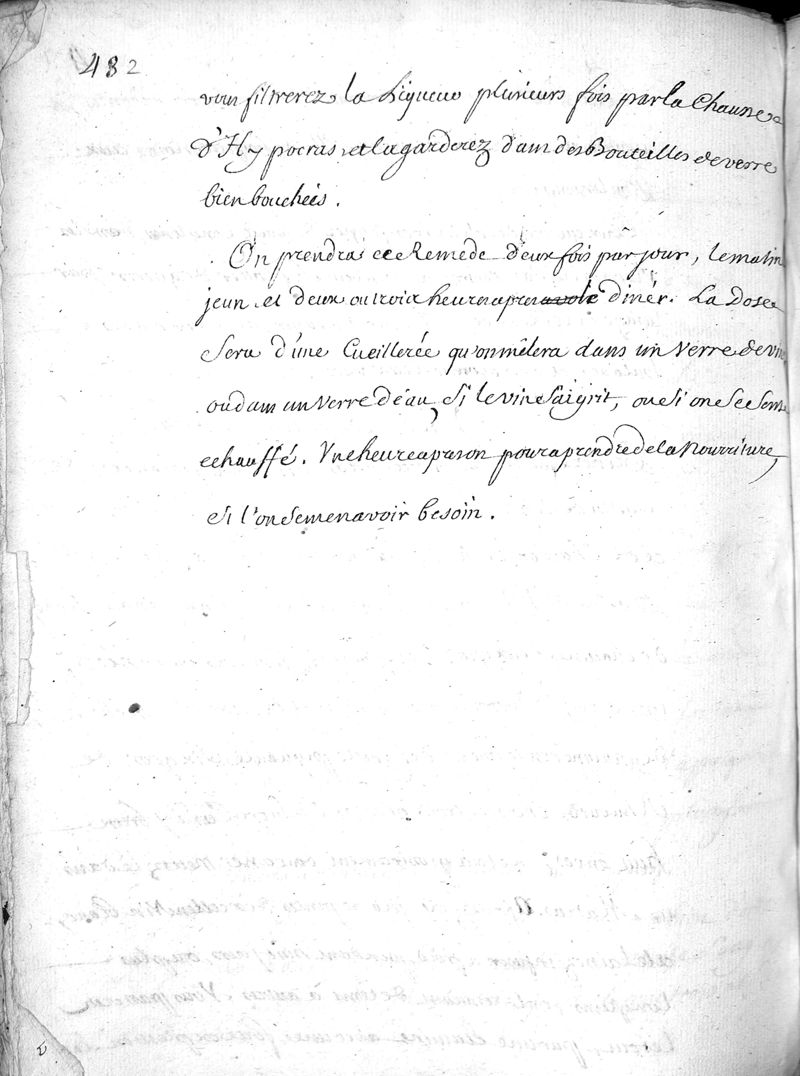 482
vous filtrerez la Liqueur plusieurs fois par la Chausse
d'Hypocras, et la garderez dans des Bouteilles de verre
bien bouchées.
On prendra ce Remede deux fois par jour, le matin
jeun, et deux ou trois heures apres diner. La Dose
Sera d'une Cueillerée qu'on mêlera dans un Verre de vin
ou dans un Verre d'éau, Si le vin S'aigrit, ou Si on Se Sens
echauffé. Vne heure apres on poura prendre de la Nourriture,
Si l'on Sem en avoir besoin.